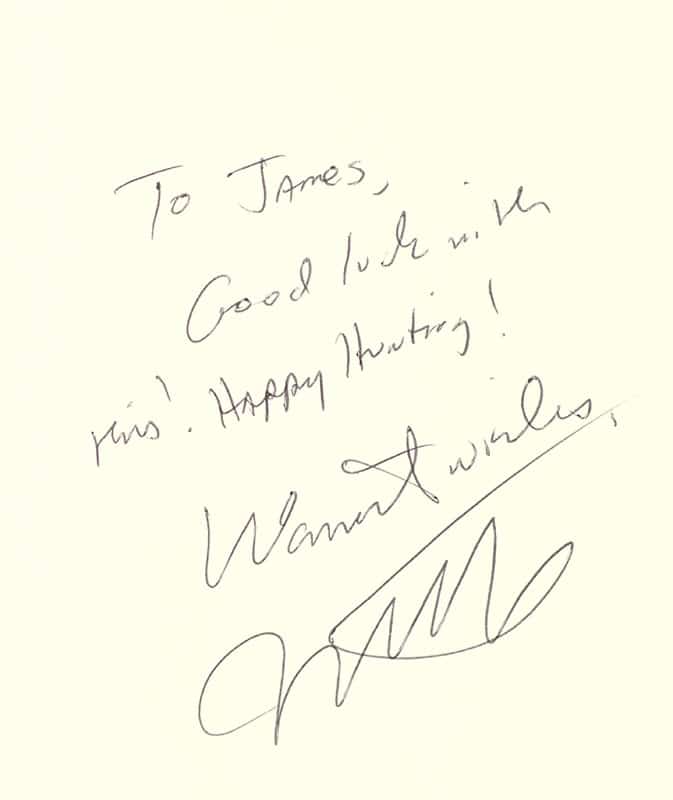 To James,
Good luck with
this! Happy Hunting!
Warmest wishes,